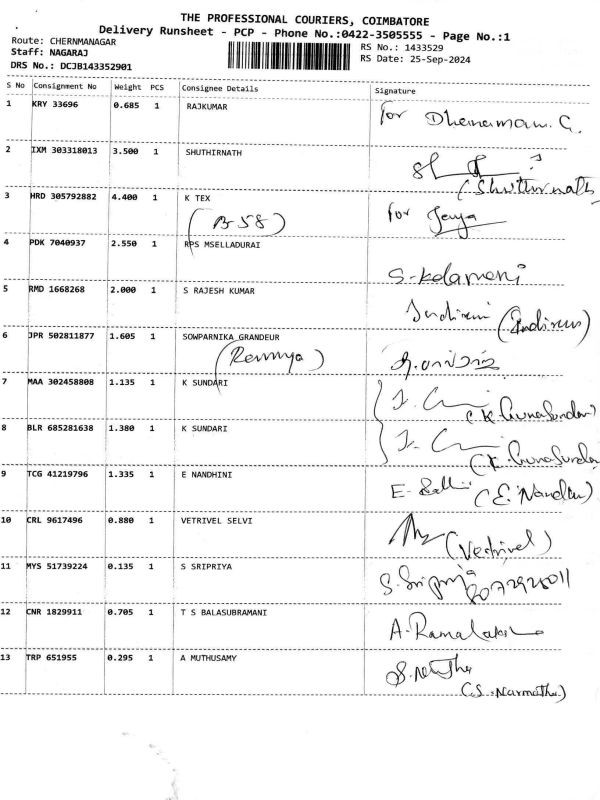 THE PROFESSIONAL COURIERS, COIMBATORE
Delivery Runsheet - PCP - Phone No.:0422-3505555 - Page No.:1
Route: CHERNMANAGAR
RS No.: 1433529
Staff: NAGARAJ
RS Date: 25-Sep-2024
DRS No.: DCJB143352901
S No Consignment No Weight PCS Consignee Details Signature
1 KRY 33696 0.685 1 RAJKUMAR for
2 IXM 303318013 3.500 1 SHUTHIRNATH
3 HRD 305792882 4.400 1 K TEX for Jeya
(B-58)
4 PDK 7040937 2.550 1 RPS MSELLADURAI
5 RMD 1668268 2.000 1 S RAJESH KUMAR
6 JPR 502811877 1.605 1 SOWPARNIKA GRANDEUR
(Remya)
7 MAA 302458808 1.135 1 K SUNDARI
8 BLR 685281638 1.380 1 K SUNDARI
9 TCG 41219796 1.335 1 E NANDHINI
10 CRL 9617496 0.880 1 VETRIVEL SELVI
(Vetrivel)
11 MYS 51739224 0.135 1 S SRIPRIYA S. Sripriya
12 CNR 1829911 0.705 1 T S BALASUBRAMANI
13 TRP 651955 0.295 1 A MUTHUSAMY
(S. Narmatha)